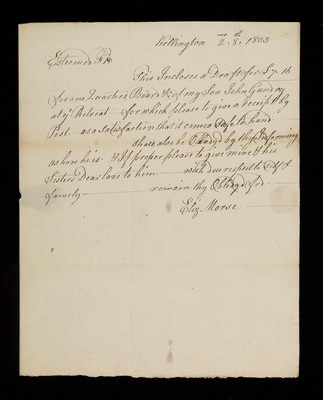 Wellington 2mo. 8th. 1803
Esteemed Frd
This Incloses a Draft for £7 th
for one Quarter's Board &c of my Son John Gundry
at ye Retreat for which please to give a Receipt by
Post as a Satisfaction that it comes safe to hand
shall also be Oblig'd by thy Informing
us how he is & If proper please to give mine & his
Sisters Dear love to him with due respect to Self &
family remain thy Obliged Frd
Eliz Morse